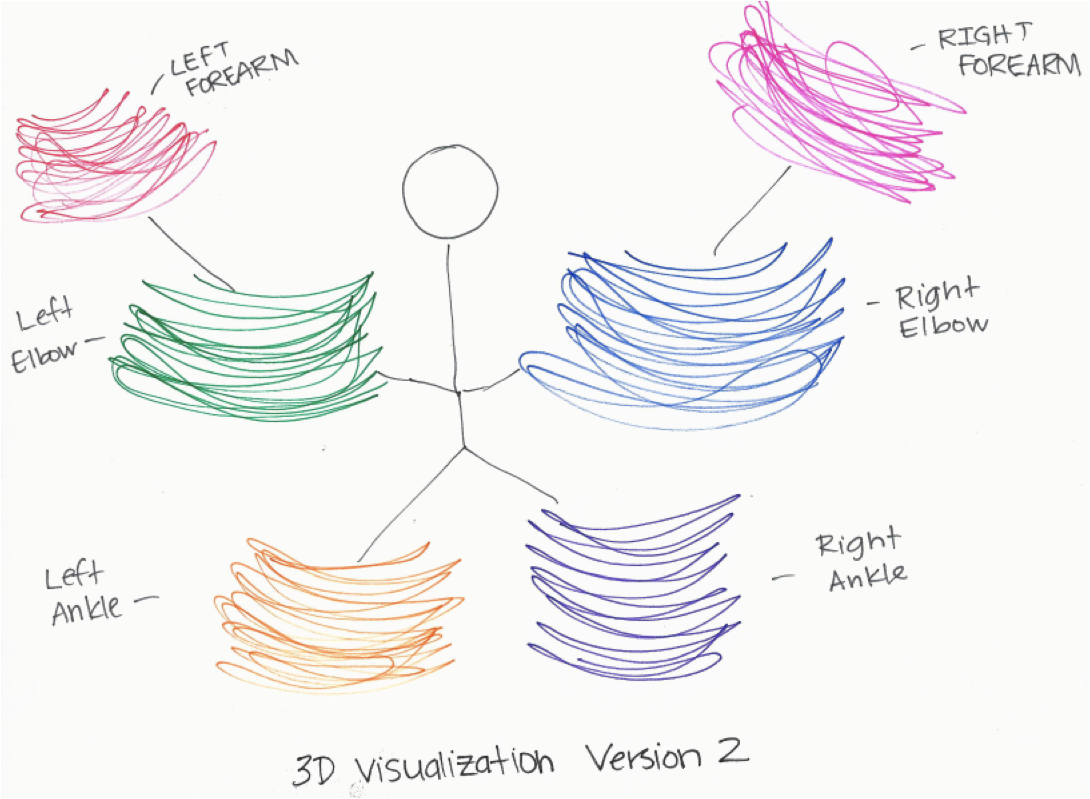 LEFT
FOREARM
RIGHT
FOREARM
Left
Elbow
Right
Elbow
Left
Ankle
Right
Ankle
3D Visualization Version 2